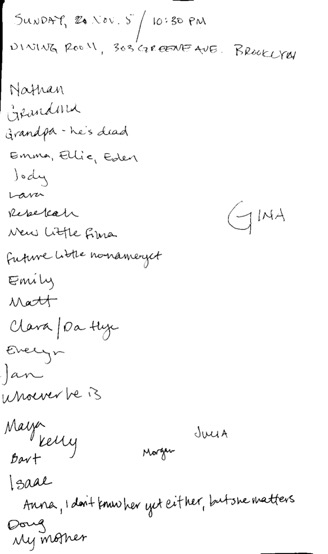 SUNDAY, Nov. 5 / 10:30 PM
DINING ROOM, 303 GREENE AVE. BROOKLYN
Nathan
Grandma
Grandpa - he's dead
Emma, Ellie, Eden
Jody
Lara
Rebekah
GINA
New little
Future little nonameyet
Emily
Matt
Clara /
Evelyn
Jan
whoever he is
Maya
Kelly
JULIA
Bart
Morgan
Isaac
Anna, I don't know her yet either, but she matters
Doug
My mother